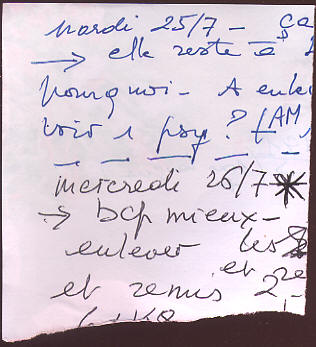 mardi 25/7 - ça
→ elle reste à
pourquoi - A
voir 1 psy? (AM
mercredi 26/7 *
→ bcp mieux -
enlever les
et
et remis 2